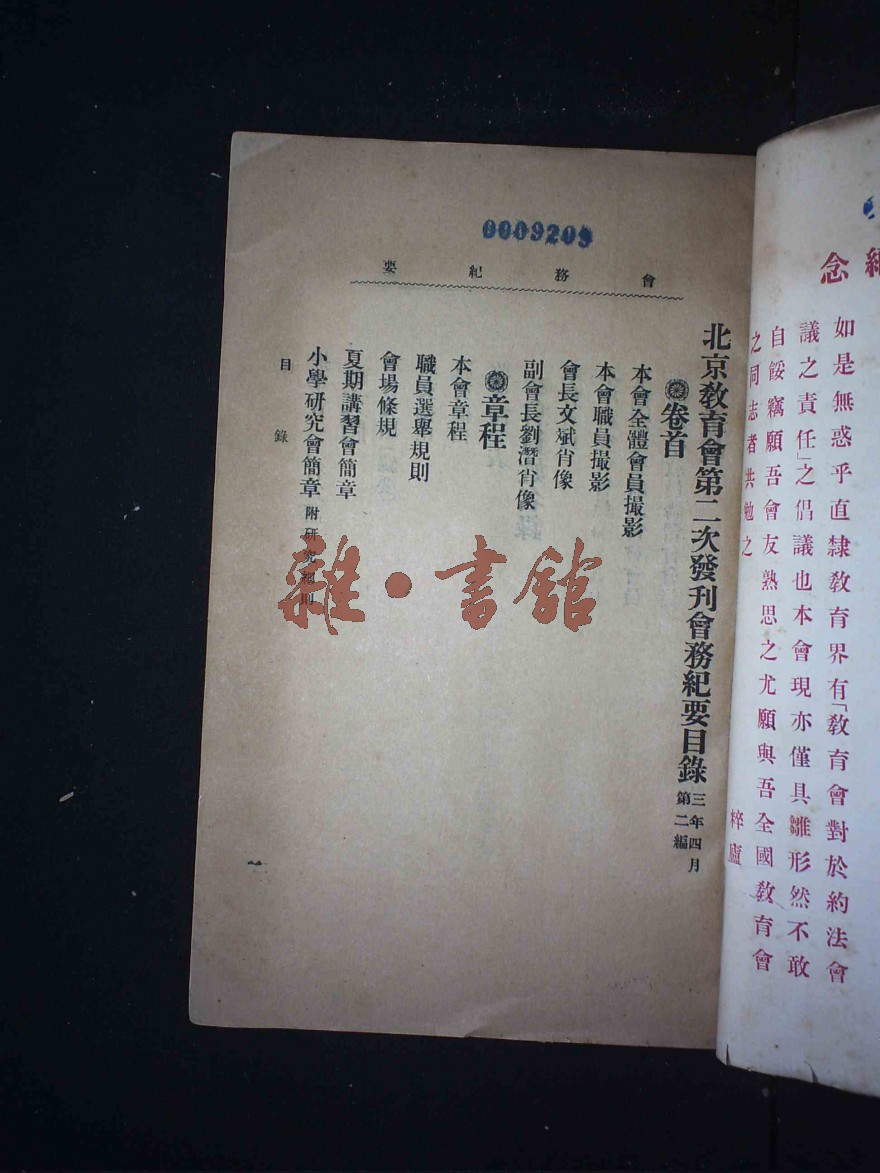 念
如是無惑乎直隸敎育界有「敎育會對於約法會
議之責任」之倡議也本會現亦僅具雛形然不敢
自餒竊願吾會友熟思之尤願與吾全國敎育會
之同志者共勉之
梓廬
0009209
會務紀要
北京敎育會第二次發刊會務紀要目錄
三年四月
第二編
卷首
本會全體會員撮影
本會職員撮影
會長文斌肖像
副會長劉潛肖像
章程
本會章程
職員選舉規則
會場條規
夏期講習會簡章
小學研究會簡章 附研究細則
目錄
一
雜·書館